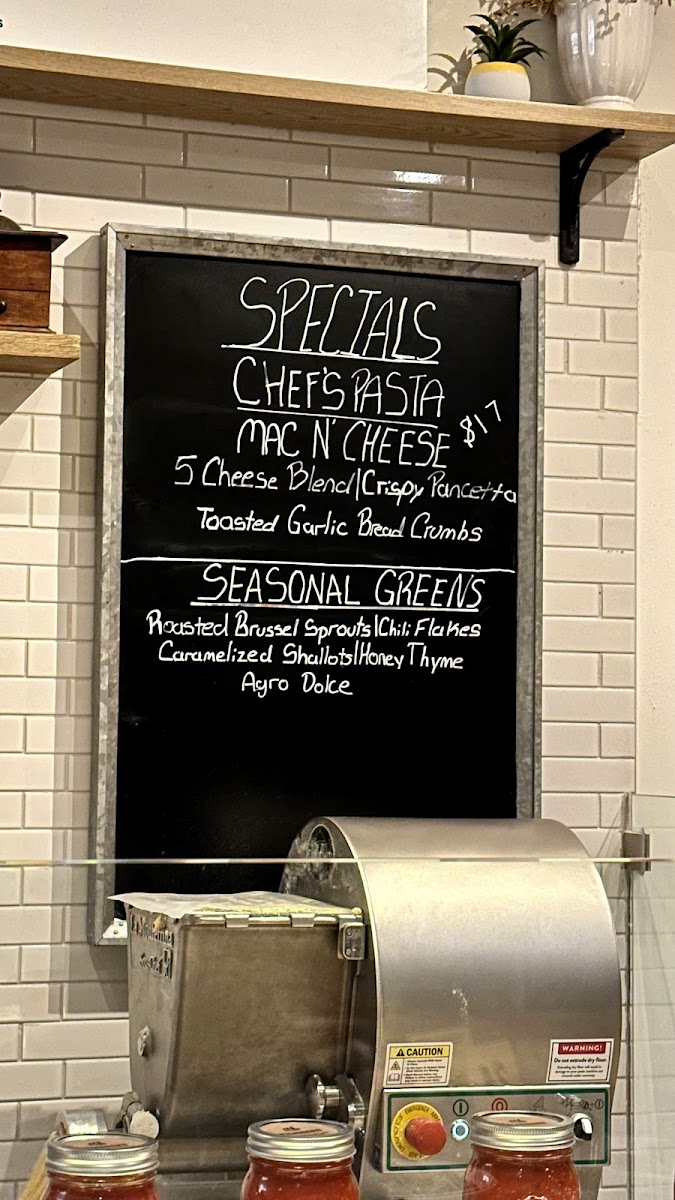 s
SPECIALS
CHEF'S PASTA
MAC N' CHEESE $17
5 Cheese Blend|Crispy Pancetta
Toasted Garlic Bread Crumbs
SEASONAL GREENS
Roasted Brussel Sprouts|Chili Flakes
Caramelized Shallots|Honey Thyme
Agro Dolce
CAUTION
WARNING!
Do not extrude dry flour.
EMERGENCY